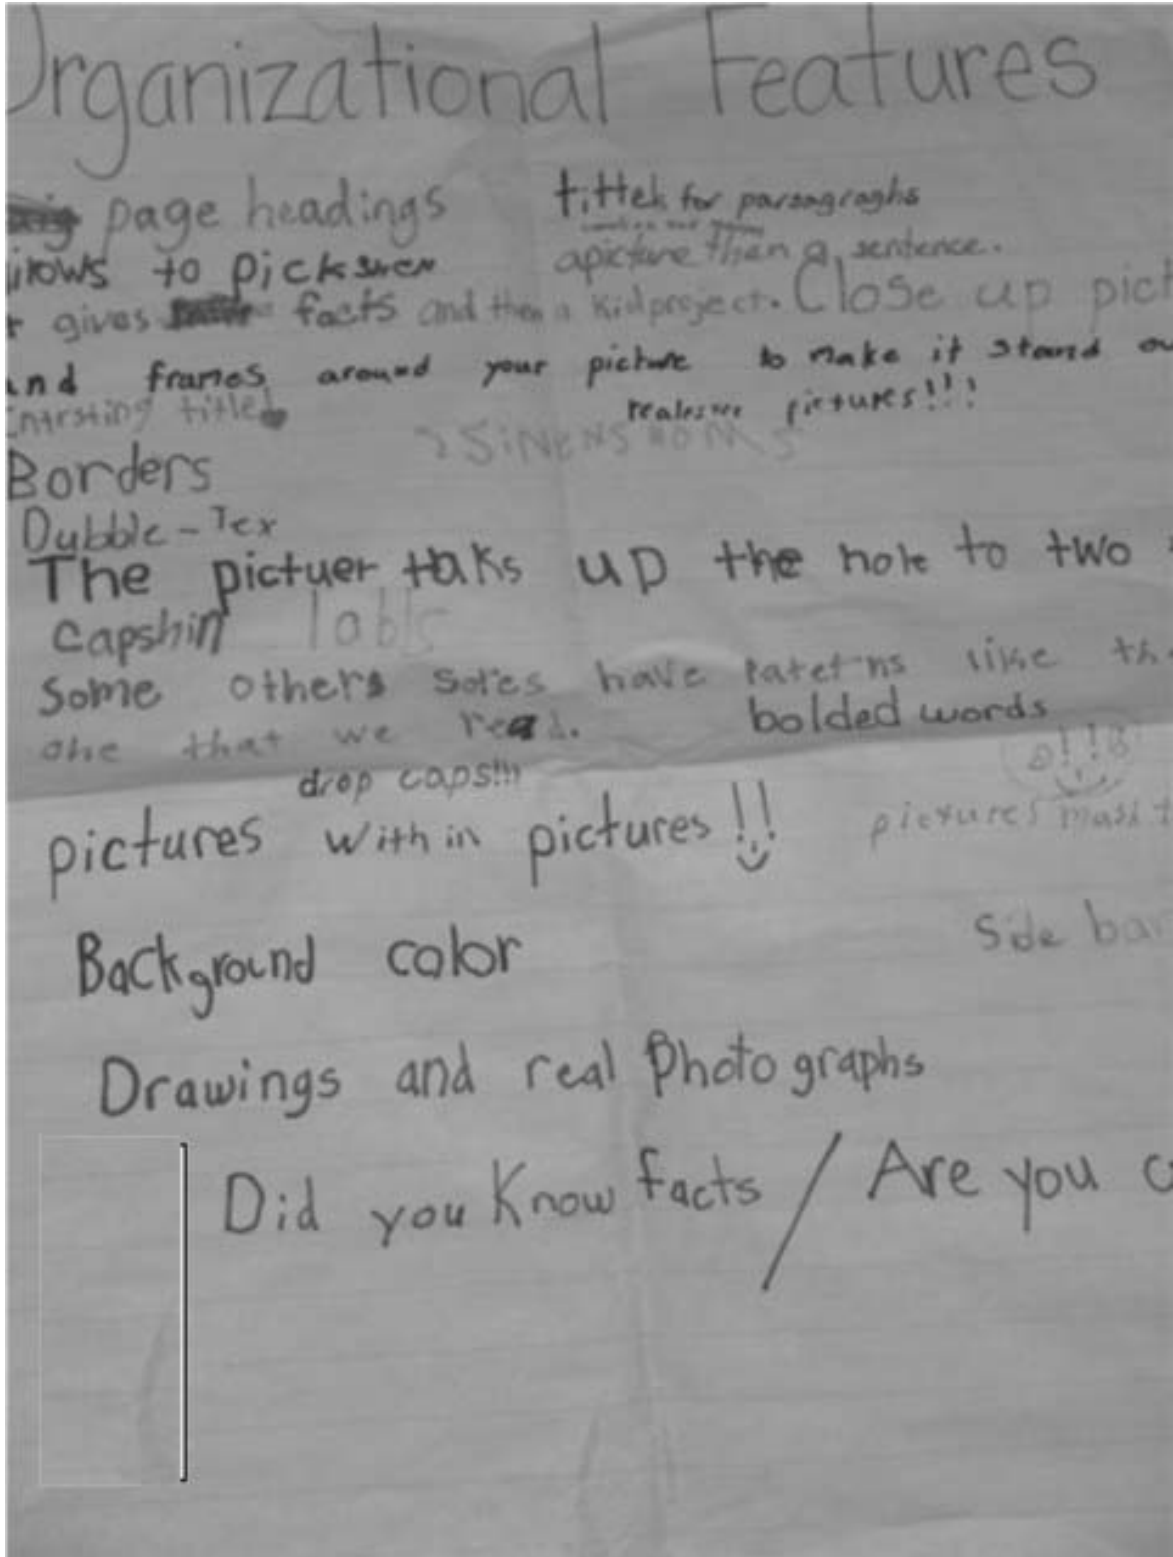 Organizational Features
page headings tittels for parsagraghs
to pickshen apicture then a sentence.
gives facts and then a kid project. Close up pict
and frames around your picture to make it stand ou
intrsting title pictures!!!
Borders
Dubble-Tex
The pictuer taks up the hole to two
Capshin labls
Some others sotes have patetrns like the
one that we read. bolded words
drop caps!!!
pictures with in pictures!! pictures
Side bar
Background color
Drawings and real Photographs
Did you Know facts / Are you c